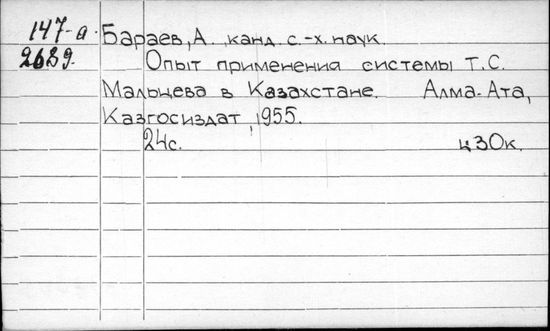 147-а Бараев, А., канд. с.-х. наук.
2689. Опыт применения системы Т.С.
Мальцева в Казахстане. Алма-Ата,
Казгосиздат, 1955.
24с. ц 30к.